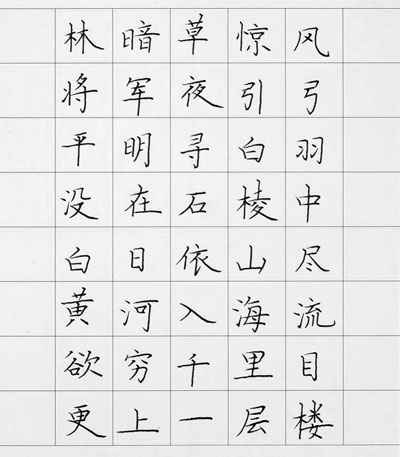 林暗草惊风
将军夜引弓
平明寻白羽
没在石棱中
白日依山尽
黄河入海流
欲穷千里目
更上一层楼